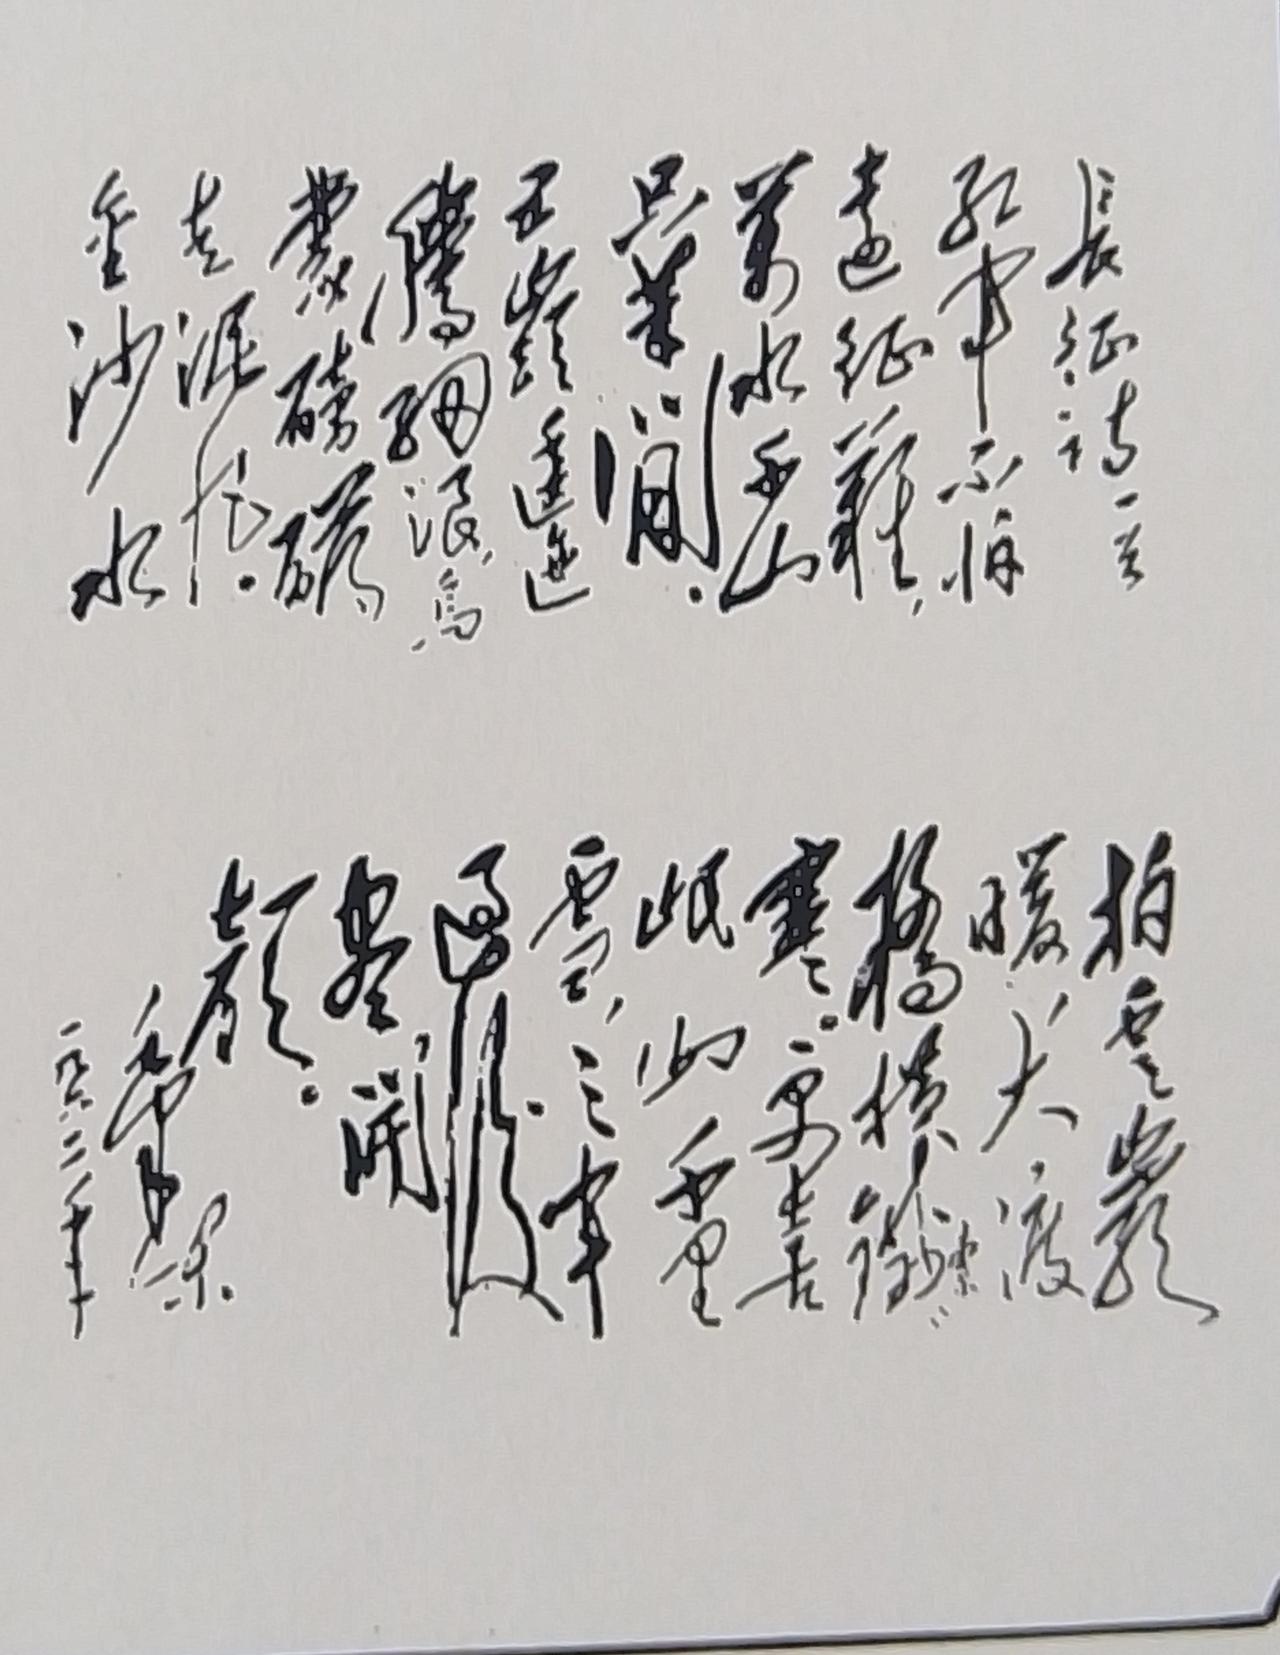 長征詩一首
紅軍不怕
遠征難,
萬水千山
只等閒.
五嶺逶迤
騰細浪,烏
蒙磅礴
走泥丸.
金沙水
拍雲巖
暖,大渡
橋橫鐵索
寒.更喜
岷山千里
雪,三軍
過後
盡開
顏.
毛澤東
一九六二年